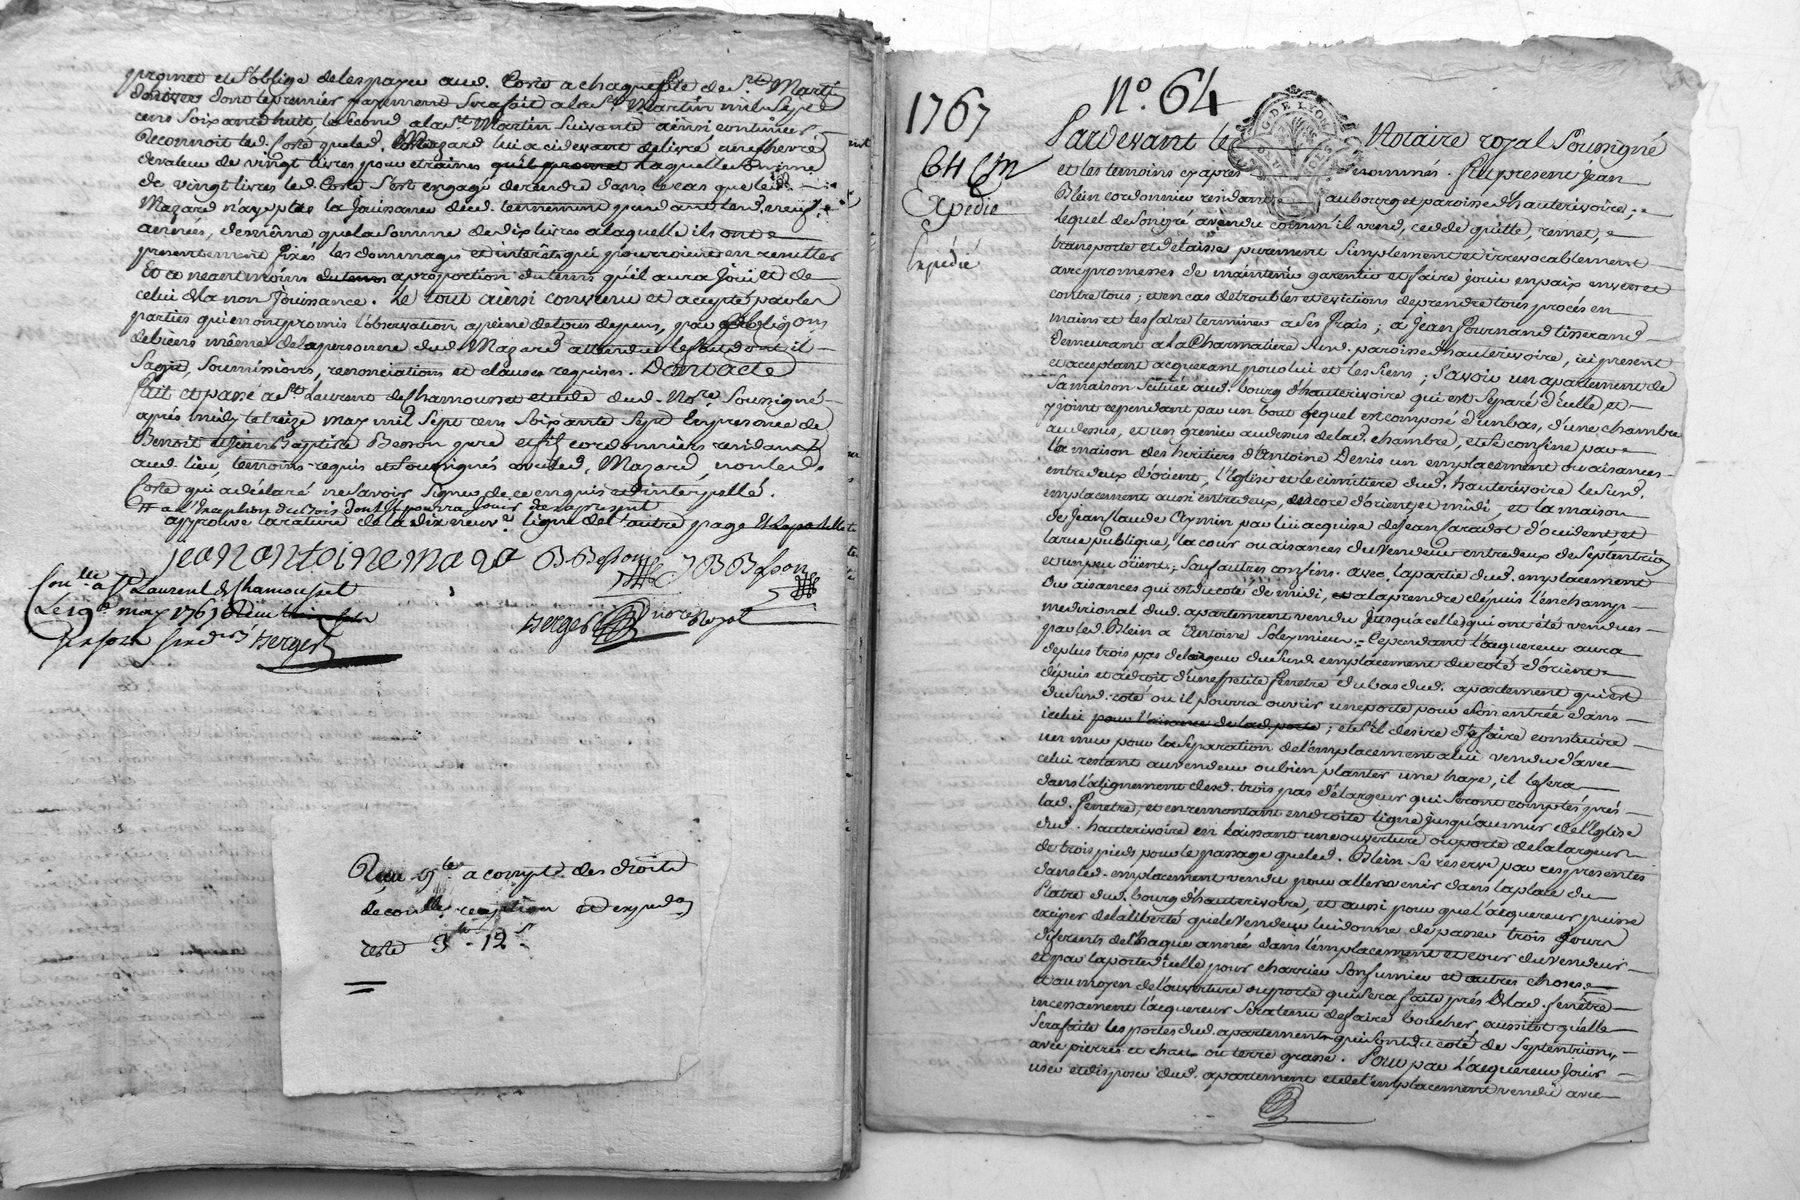 promet et s'oblige de les payer aud. Coste a chaque fête de st. Martin
d'hiver dont le premier payement sera fait a la st. Martin mil sept
cent soixante huit, le second a la st. Martin suivante ainsi continuer
Reconnoit led. Coste que led. Mazard lui a cidevant delivré une chevre
de valeur de vingt livres pour etraines qu'il promet laquelle somme
de vingt livres led. Coste s'est engagé de rendre dans le cas que led.
Mazard n'aye pas la jouissance dud. tennement pendant led. neuf
années, de même que la somme de dix livres a laquelle ils ont
presentement fixés les dommages et interêts qui pourroient en resulter
Et ce neantmoins du tems a proportion du tems qu'il aura joui et de
celui de la non jouissance. Le tout ainsi convenu et accepté par les
parties qui en ont promis l'observation a peine de tous depens, par obligaõns
de biens même de la personne dud. Mazard attendu le fait dont il
s'agit, soumissions, renonciations et clauses requises. Dont acte
fait et passé a st. Laurent de Chamousset etude dud. Nore. soussigné
après midy le treize may mil sept cens soixante sept En presence de
Benoit et Jean Baptiste Besson pere et fils cordonniers residants
aud. lieu, temoins requis et soussignés avec led. Mazard, non led.
Coste qui a déclaré ne savoir signer de ce enquis et d'interpellé.
# a l'exception du bois dont il pourra jouir des apresent
approuve la rature de la dix neuve. ligne de l'autre page
jean antoine mazard B Besson J B Besson
Conllé. a St Laurent de Chamousset
Le 19e. may 1767
Berger nore Royal
Berger
Reçu 9lt. a compte des droits
de conlle. reception et expedõn
reste 3lt - 12s.
1767
64
Expedié
Expédié
No. 64
G. DE LYON
Pardevant le Notaire royal soussigné
et les temoins cy après denommés. fut present Jean
Blein cordonnier residant au bourg et paroisse d'hauterivoire,
lequel de son gré a vendu comm'il vend, cedde quitte, remet,
transporte et delaisse purement simplement et irrevocablement
avec promesses de maintenir garentir et faire jouir en paix envers et
contre tous; et en cas de troubles et evictions de prendre tous procés en
mains et les faire terminer a ses frais; a Jean Fournand tisserand
demeurant a la Charmatiere susd. paroisse d'hauterivoire, ici present
et acceptant acquerant pour lui et les siens; savoir un apartement de
sa maison scituée aud. bourg d'hauterivoire qui est separé d'icelle et
y joint cependant par un bout lequel est composé d'un bas, d'une chambre
au dessus, et un grenier au dessus de lad. chambre, et se confine par
la maison des heritiers d'Antoine Denis un emplacement ou aisances
entre deux d'orient, l'Eglise et le cimitiere dud. hauterivoire le susd.
emplacement aussi entre deux, encore d'orient et midi, et la maison
de Jean Claude Aymin par lui acquise de Jean Faradot d'occident et
la rue publique, la cour ou aisances du vendeur entre deux de septentrion
et un peu orient; sauf autres confins. avec la partie dud. emplacement
ou aisances qui est du coté de midi, a la prendre depuis l'enchamp
meridional dud. apartement vendu jusqu'a celles qui ont été vendues
par led. Blein a Antoine Soleymieu. Cependant l'acquereur aura
de plus trois pas de largeur du susd. emplacement du coté d'orient
depuis et a droit d'une petite fenetre du bas dud. apartement qui est
du susd. coté ou il pourra ouvrir une porte pour son entrée dans
icelui pour l'aisance de lad. porte; et s'il desire de faire construire
un mur pour la separation de l'emplacement a lui vendu d'avec
celui restant au vendeur ou bien planter une haye, il le fera
dans l'alignement desd. trois pas de largeur qui seront comptés près
lad. fenetre, et en remontant en droite ligne jusqu'au mur de l'Eglise
dud. hauterivoire en laissant une ouverture ou porte de la largeur
de trois pieds pour le passage que led. Blein se reserve par ces presentes
dans led. emplacement vendu pour aller et venir dans la place du
Platre dud. bourg d'hauterivoire, et aussi pour que l'acquereur puisse
exciper de la liberté que le Vendeur lui donne de passer trois jours
diferents de chaque année dans l'emplacement et cour du vendeur
et par la porte d'icelle pour charrier son fumier et autres choses.
et au moyen de l'ouverture ou porte qui sera faite près de lad. fenêtre
incessament l'acquereur sera tenu de faire boucher, aussitot qu'elle
sera faite les portes dud. apartement qui sont du coté de septentrion,
avec pierres et chau ou terre grasse. Pour par l'acquereur jouir
user et disposer dud. apartement et de l'emplacement vendu avec